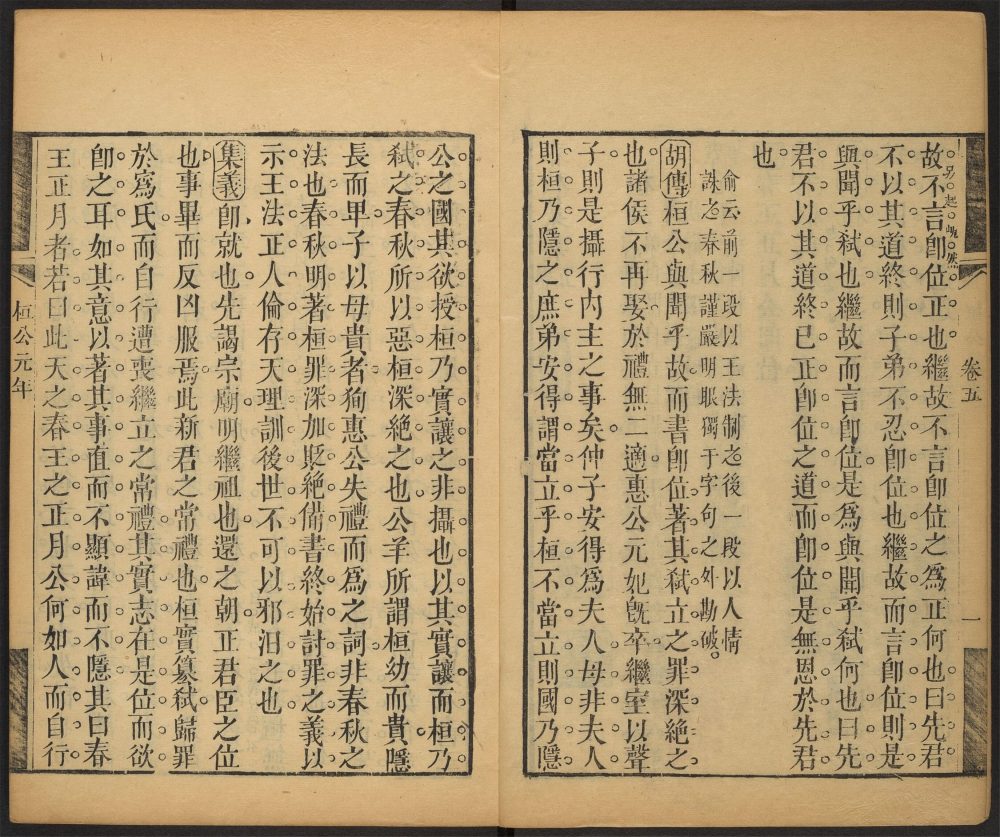 故不言卽位正也繼故不言卽位之爲正何也曰先君
不以其道終則子弟不忍卽位也繼故而言卽位則是
與聞乎弒也繼故而言卽位是爲與聞乎弒何也曰先
君不以其道終已正卽位之道而卽位是無恩於先君
也
俞云前一段以王法制之後一段以人情
誅之春秋謹嚴明眼獨于字句之外勘破
胡傳桓公與聞乎故而書卽位著其弒立之罪深絶之
也諸侯不再娶於禮無二適惠公元妃旣卒繼室以聲
子則是攝行內主之事矣仲子安得爲夫人母非夫人
則桓乃隱之庶弟安得謂當立乎桓不當立則國乃隱
卷五
一
公之國其欲授桓乃實讓之非攝也以其實讓而桓乃
弒之春秋所以惡桓深絶之也公羊所謂桓幼而貴隱
長而卑子以母貴者狥惠公失禮而爲之詞非春秋之
法也春秋明著桓罪深加貶絶備書終始討罪之義以
示王法正人倫存天理訓後世不可以邪汨之也
集義卽就也先謁宗廟明繼祖也還之朝正君臣之位
也事畢而反凶服焉此新君之常禮也桓實簒弒歸罪
於寪氏而自行遭喪繼立之常禮其實志在是位而欲
卽之耳如其意以著其事直而不顯諱而不隱其曰春
王正月者若曰此天之春王之正月公何如人而自行
桓公元年